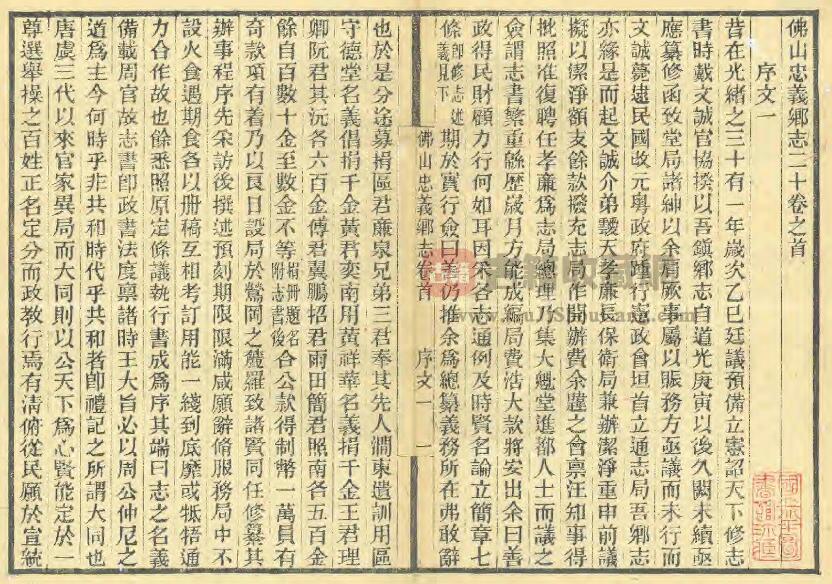 佛山忠義鄉志二十卷之首
序文一
昔在光緒之三十有一年歲次乙巳廷議預備立憲詔天下修志
書時戴文誠官協揆以吾鎮鄉志自道光庚寅以後久闕未續亟
應纂修函致堂局諸紳以余肩厥事屬以賑務方亟議而未行而
文誠薨逮民國改元粵政府踵行憲政會垣首立通志局吾鄉志
亦緣是而起文誠介弟天孝廉長保衛局兼辦潔淨重申前議
擬以潔淨額支餘款撥充志局作開辦費余韙之會稟汪知事得
批照准復聘任孝廉爲志局總理乃集大魁堂進鄉人士而議之
僉謂志書繁重緜歷歲月方能成編局費浩大款將安出余曰善
政得民財顧力行何如耳因采各志通例及時賢名論立簡章七
條即修志述義見下期於實行僉曰善乃推余爲總纂義務所在弗敢辭
佛山忠義鄉志卷首 序文一 一
也於是分途募捐區君廉泉兄弟三君奉其先人澗東遺訓用區
守德堂名義倡捐千金黃君奕南用黃祥華名義捐千金王君理
卿阮君其沅各六百金傅君翼鵬招君雨田簡君照南各五百金
餘自百數十金至數金不等捐冊題名附志書後合公款得制幣一萬員有
奇款項有着乃以良日設局於鶯岡之麓羅致諸賢同任修纂其
辦事程序先采訪後撰述預刻期限限滿咸願辭脩服務局中不
設火食遇期食各以冊稿互相考訂用能一綫到底靡或牴牾通
力合作故也餘悉照原定條議執行書成爲序其端曰志之名義
備載周官故志書即政書法度稟諸時王大旨必以周公仲尼之
道爲主今何時乎非共和時代乎共和者即禮記之所謂大同也
唐虞三代以來官家異局而大同則以公天下爲心賢能定於一
尊選舉操之百姓正名定分而政教行焉有清俯從民願於宣統
古籍收藏網
www.GuJiShouCang.com